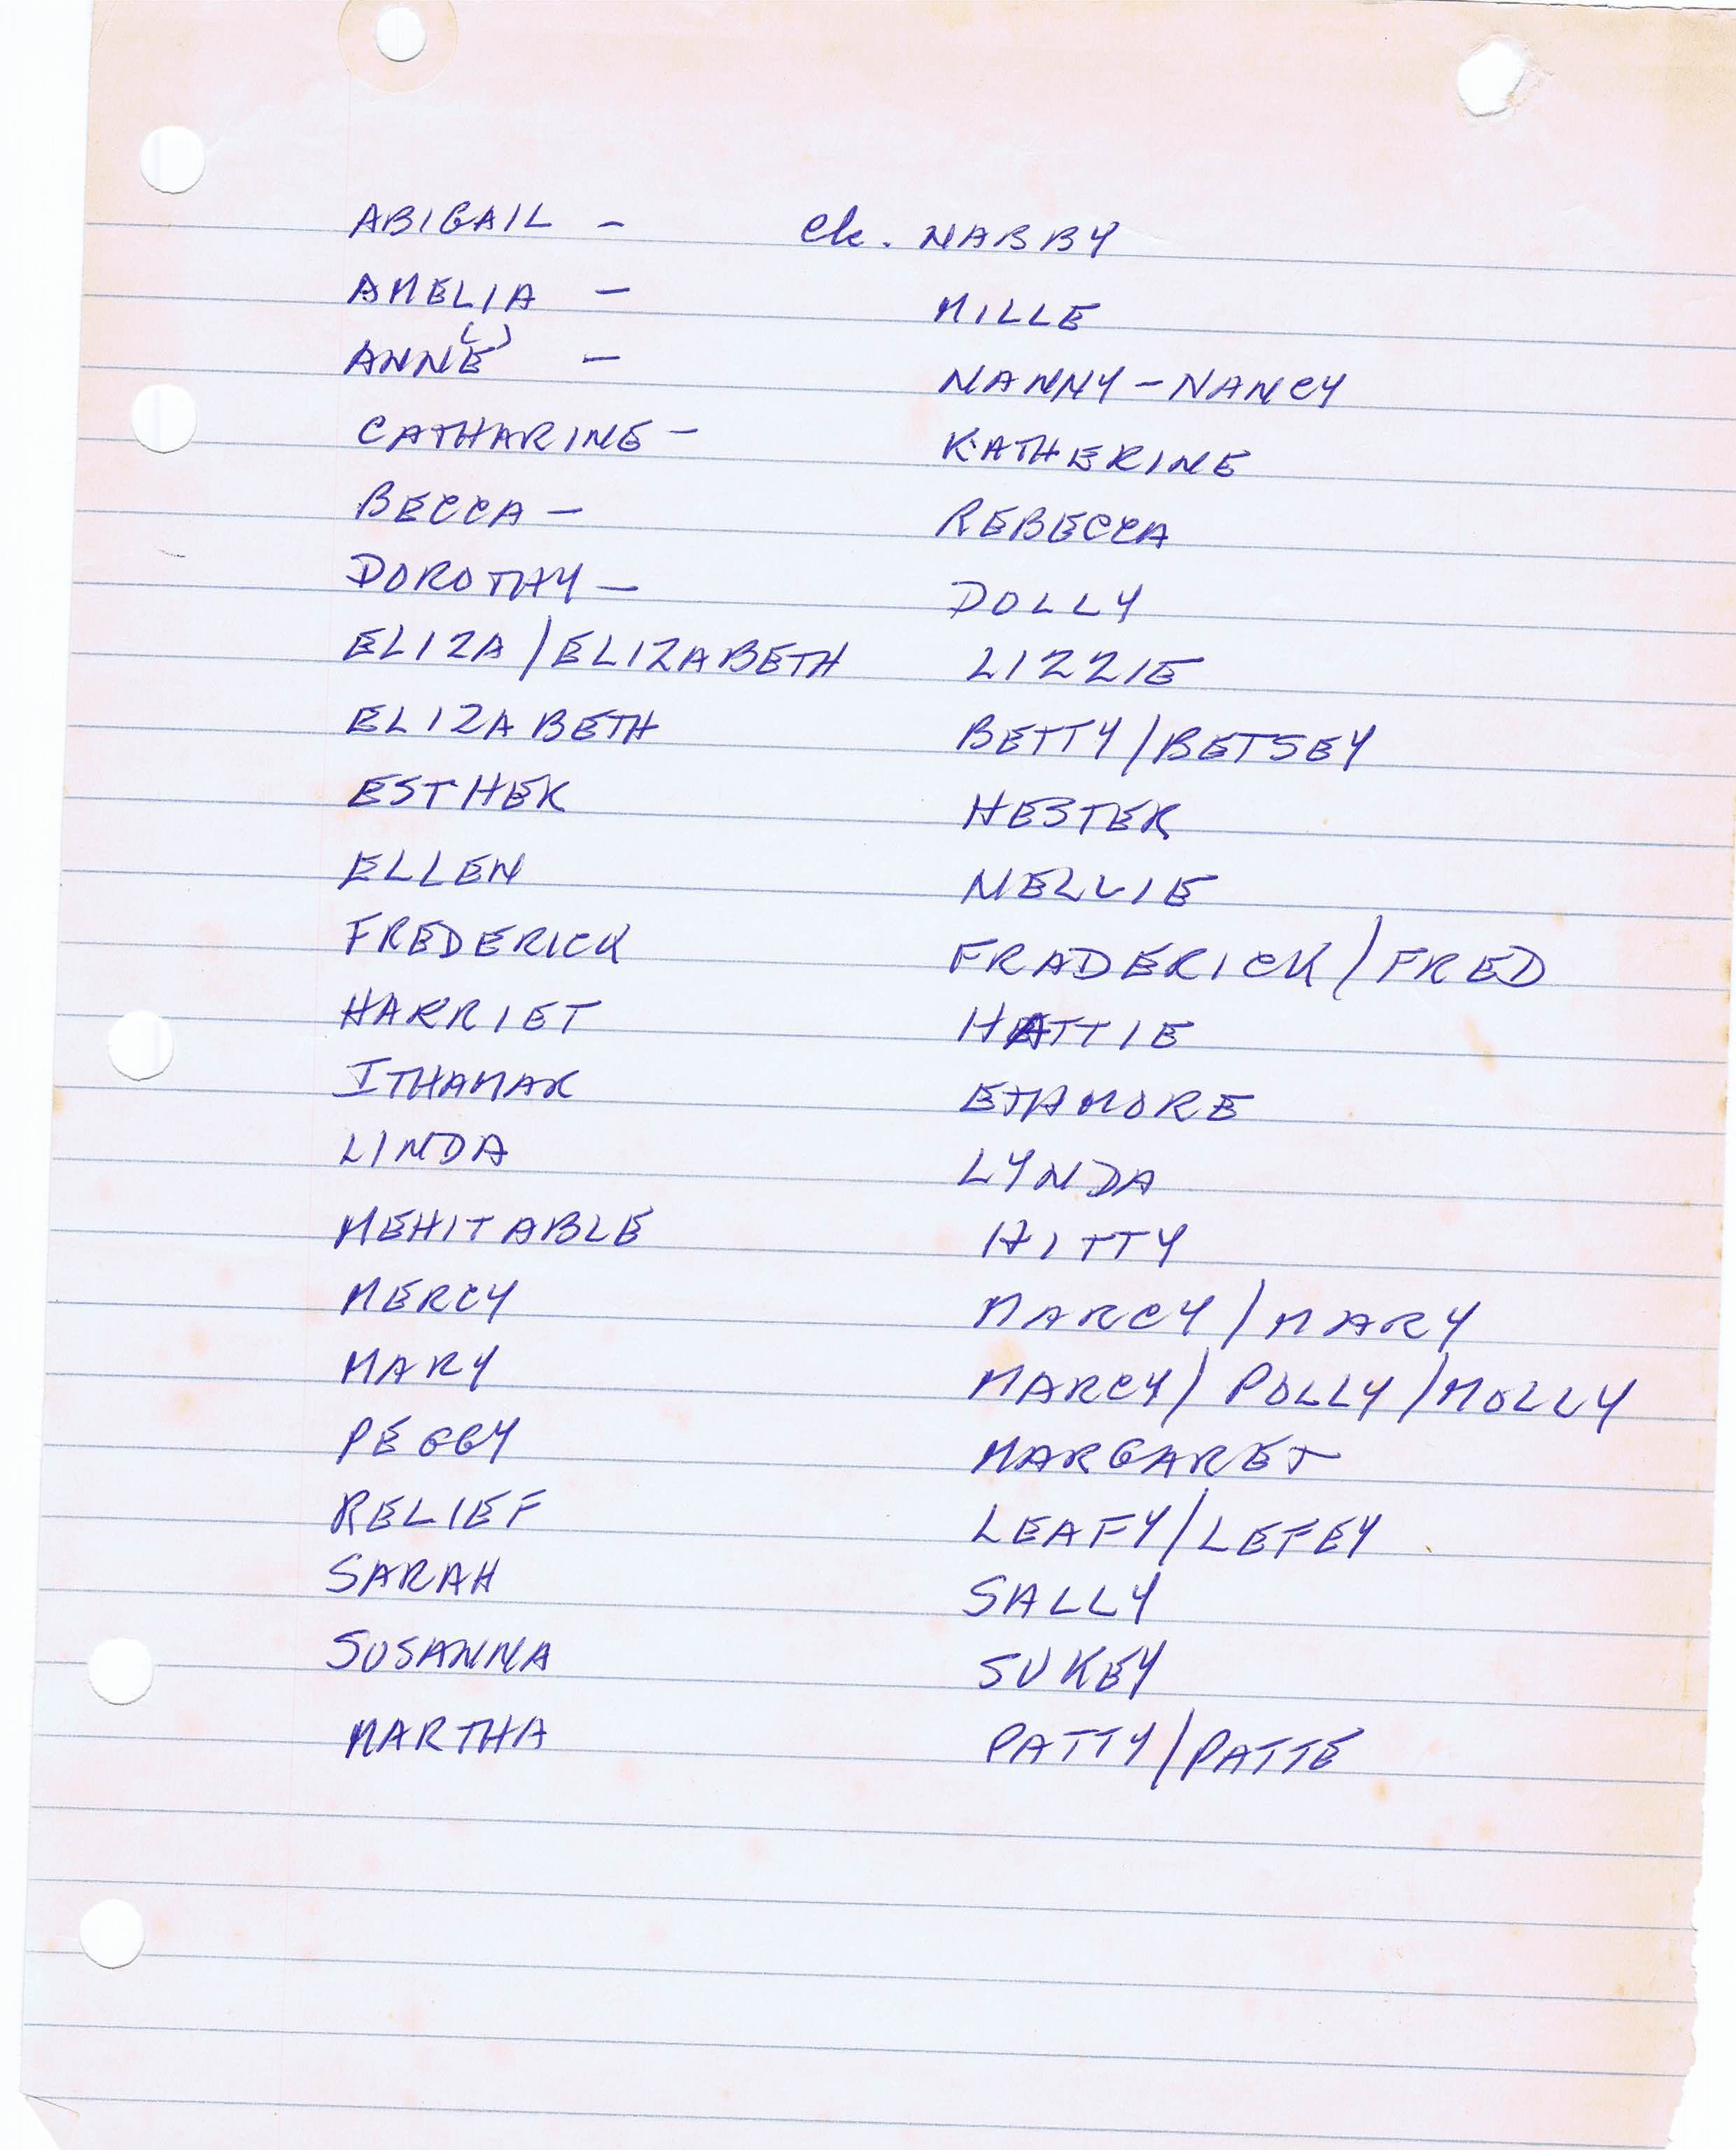 ABIGAIL - ck. NABBY
AMELIA - MILLE
ANN(E) - NANNY - NANCY
CATHARINE - KATHERINE
BECCA - REBECCA
DOROTHY - DOLLY
ELIZA/ELIZABETH LIZZIE
ELIZABETH BETTY/BETSEY
ESTHER HESTER
ELLEN NELLIE
FREDERICK FRADERICK/FRED
HARRIET HATTIE
ITHAMAR ETHAMORE
LINDA LYNDA
MEHITABLE HITTY
MERCY MARCY/MARY
MARY MARCY/POLLY/MOLLY
PEGGY MARGARET
RELIEF LEAFY/LEFEY
SARAH SALLY
SUSANNA SUKEY
MARTHA PATTY/PATTE